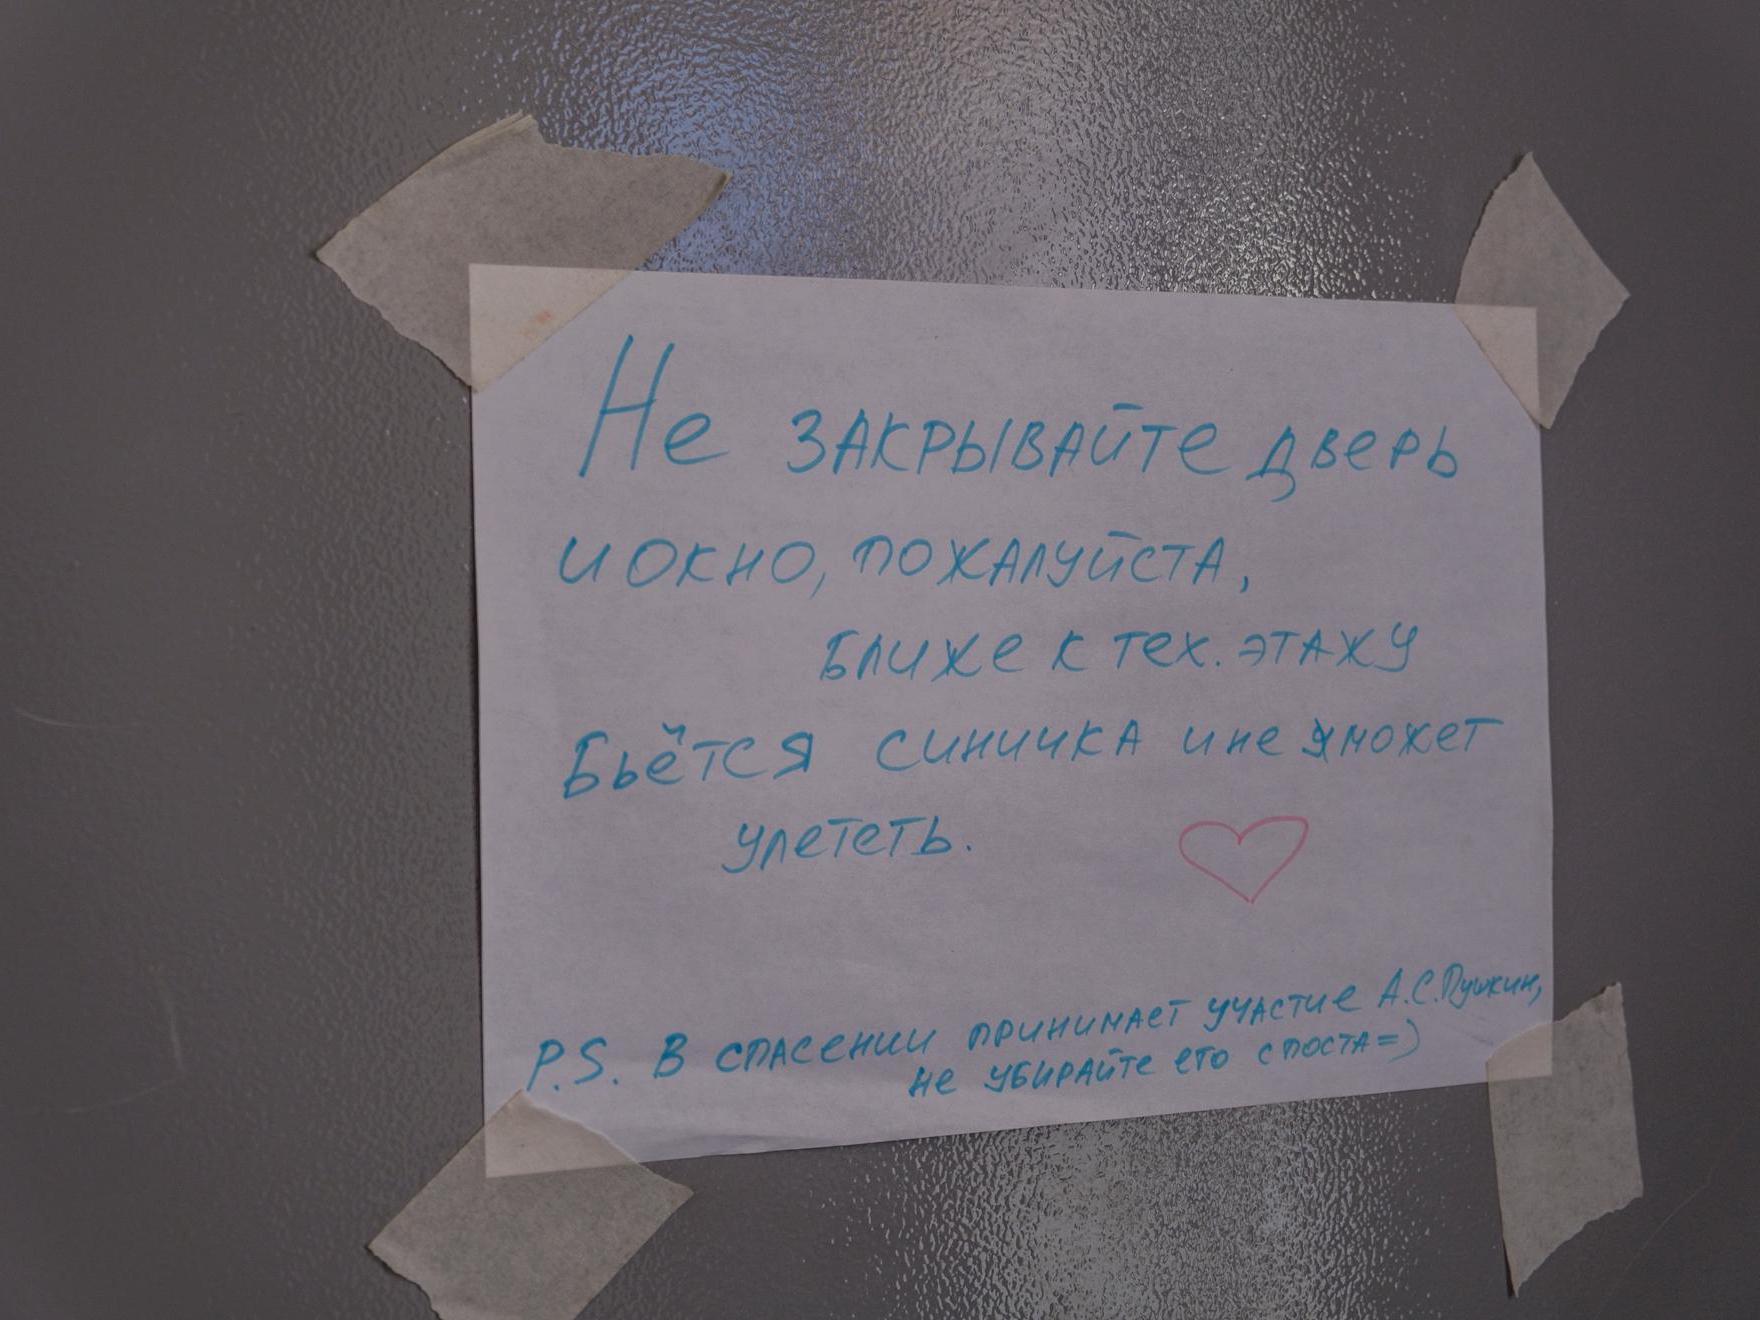 Не закрывайте дверь
и окно, пожалуйста,
ближе к тех. этажу
Бьётся синичка и не может
улететь.
P.S. В спасении принимает участие А.С.Пушкин,
не убирайте его с поста =)